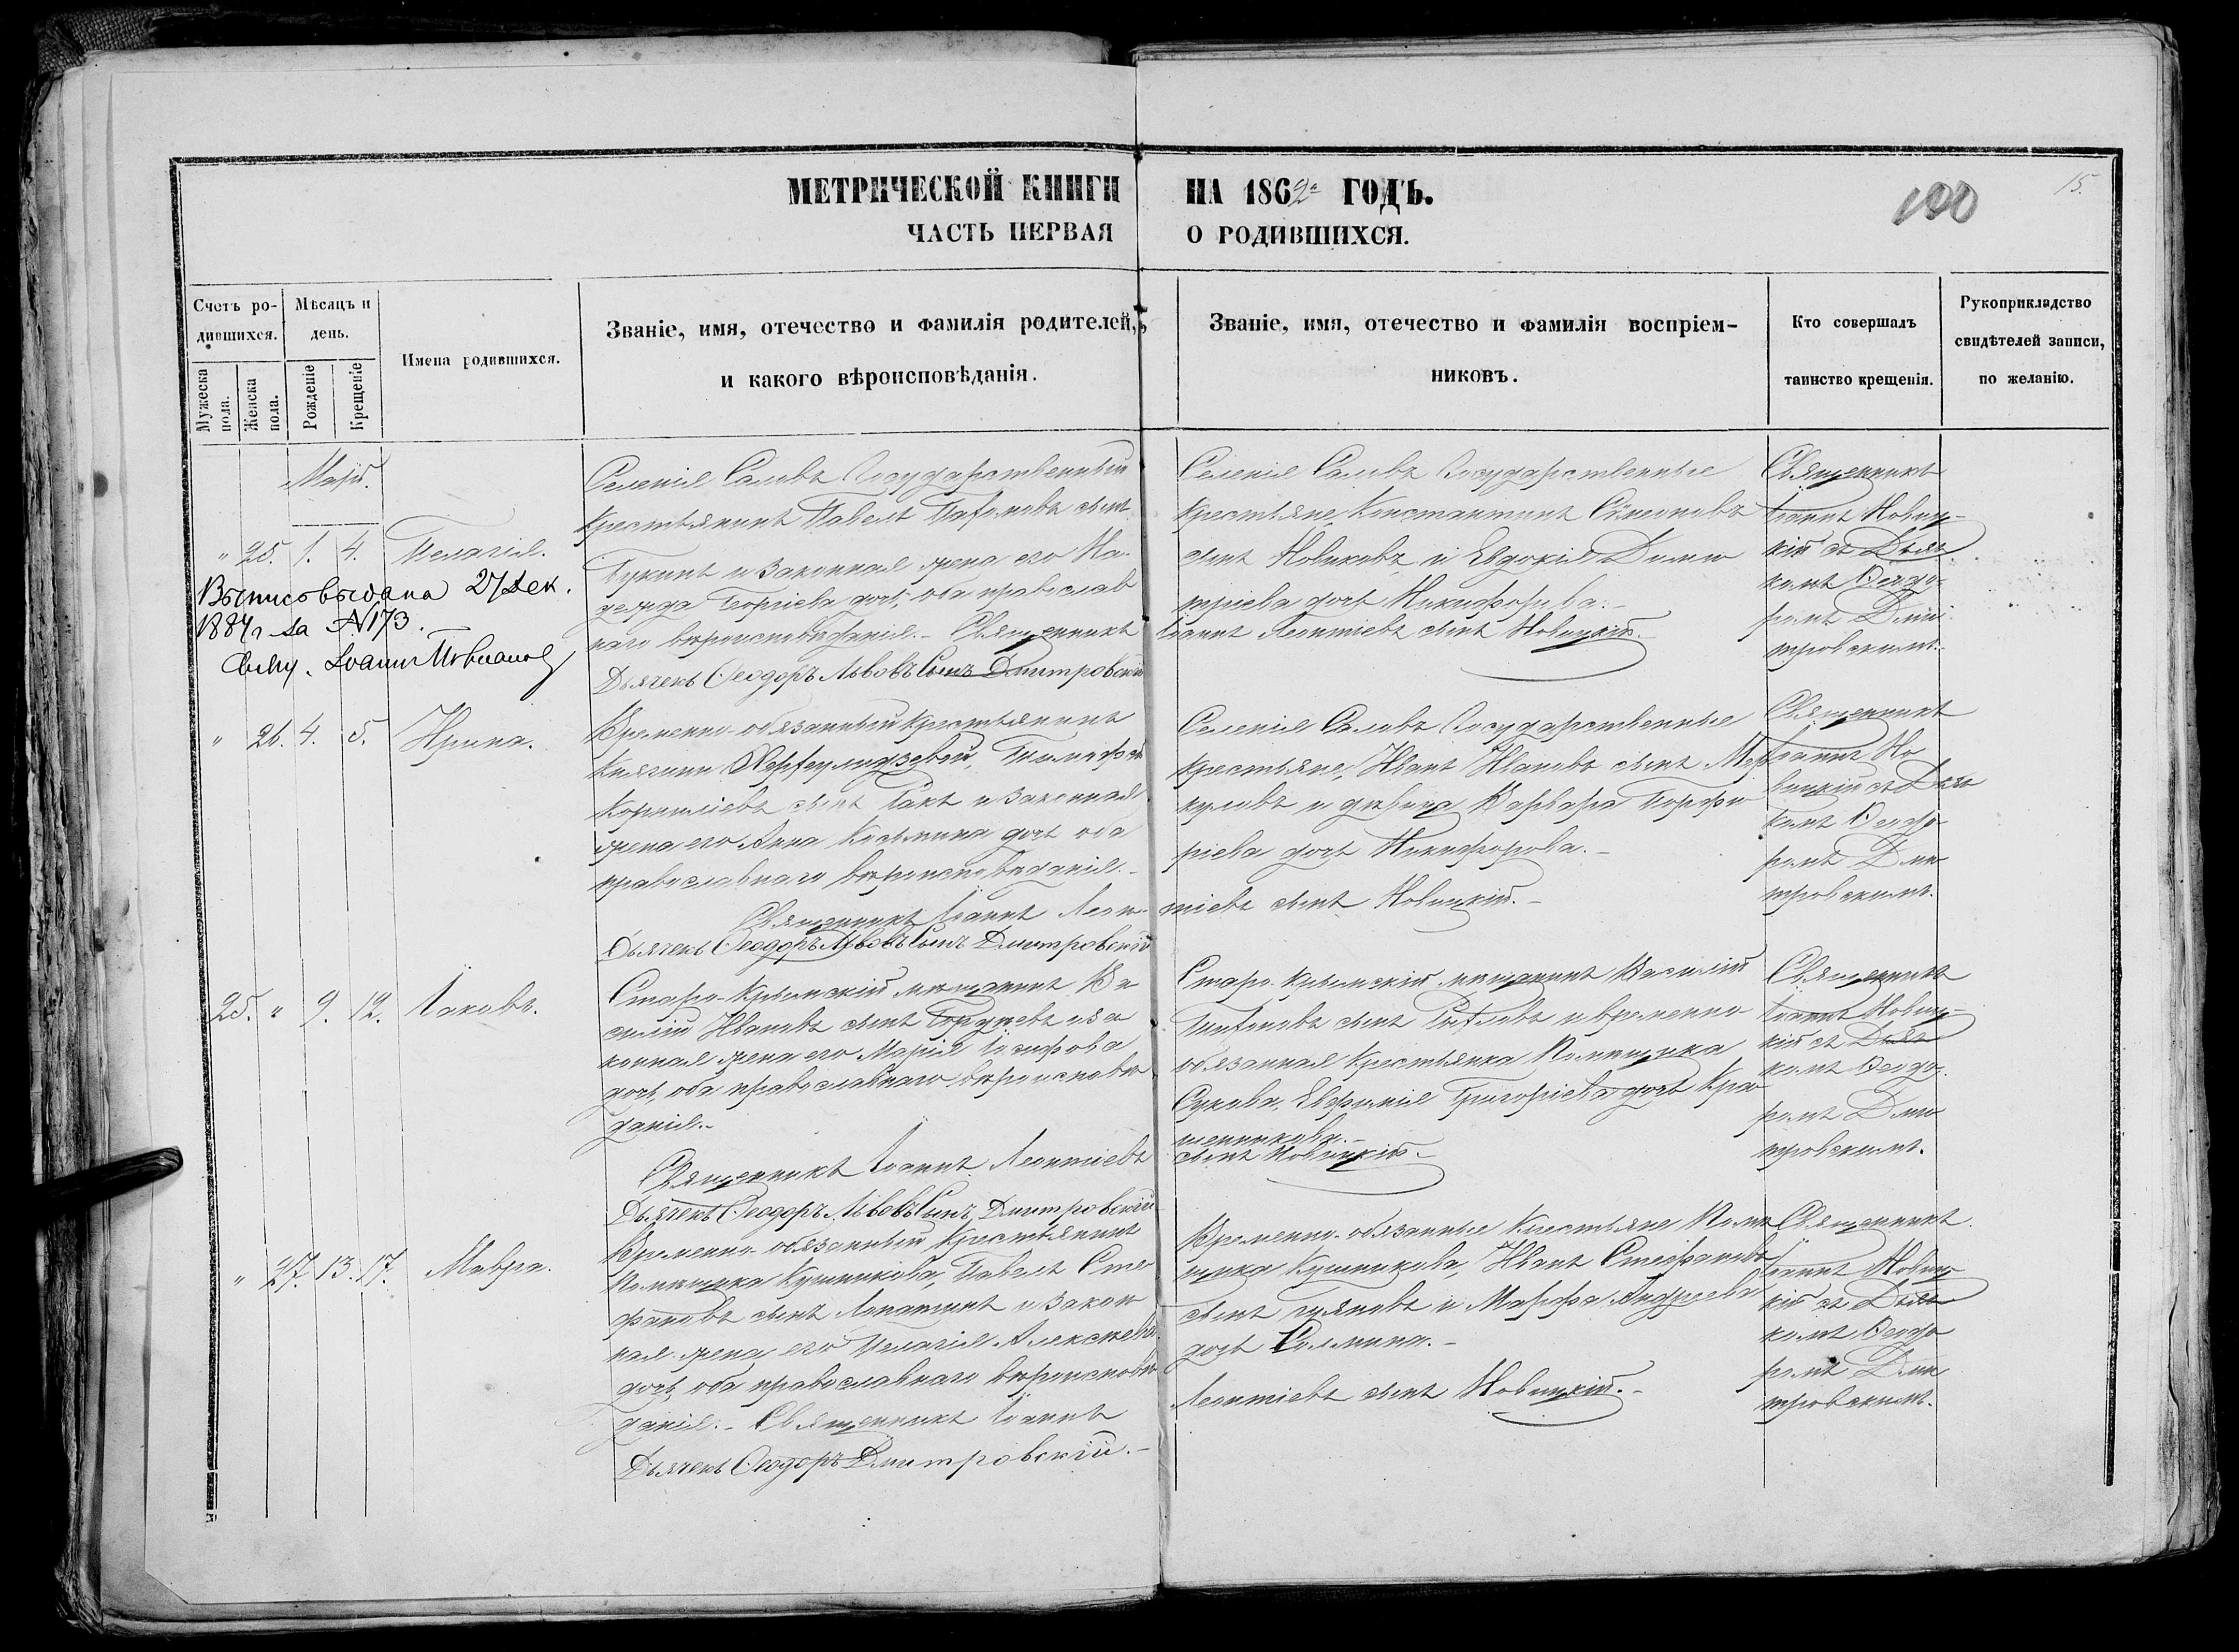 МЕТРИЧЕСКОЙ КНИГИ НА 1862й ГОДЪ.
100
15.
ЧАСТЬ ПЕРВАЯ О РОДИВШИХСЯ.
Счетъ ро-
дившихся.
Мужеска
пола.
Женска
пола.
Мѣсяцъ и
день.
Рожденіе
Крещеніе
Имена родившихся.
Званіе, имя, отечество и фамилія родителей,
и какого вѣроисповѣданія.
Званіе, имя, отечество и фамилія воспріем-
никовъ.
Кто совершалъ
таинство крещенія.
Рукоприкладство
свидѣтелей записи,
по желанію.
Маій.
" 25. 1. 4. Пелагія.
Выпись выдана 27 Дек.
1884 г за №173.
Свящ. Іоаннъ
Селенія Саловъ Государственный
Крестьянинъ Павелъ Пахомовъ сынъ
и законная жена его На-
дежда Георгіева дочь, оба православ
наго вѣроисповѣданія. - Священникъ
Дьячекъ Ѳеодоръ Львовъ Сынъ Дмитровскій
Селенія Саловъ Государственные
крестьяне, Константинъ Симеоновъ
сынъ Новиковъ и Евдокія Дими
тріева дочь Никифорова. -
Іоаннъ Леонтіевъ сынъ Новицкій. -
Священникъ
Іоаннъ Новиц-
кій съ Дья
комъ Ѳеодо-
ромъ Дми
тровскимъ.
" 26. 4. 5. Ирина.
Временно-обязанный крестьянинъ
Княгини Тимофей
Корниліевъ сынъ и законная
жена его Анна Козьмина дочь оба
православнаго вѣроисповѣданія. -
Священникъ Іоаннъ Леон-
Дьячекъ Ѳеодоръ Львовъ Сынъ Дмитровскій
Селенія Саловъ Государственные
крестьяне, Иванъ Ивановъ сынъ Мер
куловъ и дѣвица Варвара Порфи
ріева дочь Никифорова. -
тіевъ сынъ Новицкій. -
Священникъ
Іоаннъ Но
вицкій съ Дья
комъ Ѳеодо
ромъ Дми
тровскимъ.
25. " 9. 12. Іаковъ.
Старо-Крымскій мѣщанинъ Ва
силій Ивановъ сынъ и за
конная жена его Марія Іосифова
дочь, оба православнаго вѣроисповѣ
данія. -
Священникъ Іоаннъ Леонтіевъ
Дьячекъ Ѳеодоръ Львовъ Сынъ Дмитровскій
Старо-Крымскій мѣщанинъ Василій
Тихоновъ сынъ и временно
обязанная Крестьянка Помѣщика
Евфимія Григоріева дочь Кра
шенникова. -
сынъ Новицкій. -
Священникъ
Іоаннъ Новиц-
кій съ Дья
комъ Ѳеодо-
ромъ Дми
тровскимъ.
" 27. 13. 17. Мавра.
Временно-обязанный Крестьянинъ
Помѣщика Кушникова, Павелъ Сте
фановъ сынъ Лопатинъ и закон
ная жена его Пелагія Алексѣева
дочь, оба православнаго вѣроисповѣ
данія. - Священникъ Іоаннъ
Дьячекъ Ѳеодоръ Дмитровскій. -
Временно-обязанные Крестьяне Помѣ
щика Кушникова, Иванъ Стефановъ
сынъ и Марфа Андреева
дочь -
Леонтіевъ сынъ Новицкій. -
Священникъ
Іоаннъ Новиц
кій съ Дья
комъ Ѳеодо
ромъ Дми
тровскимъ.